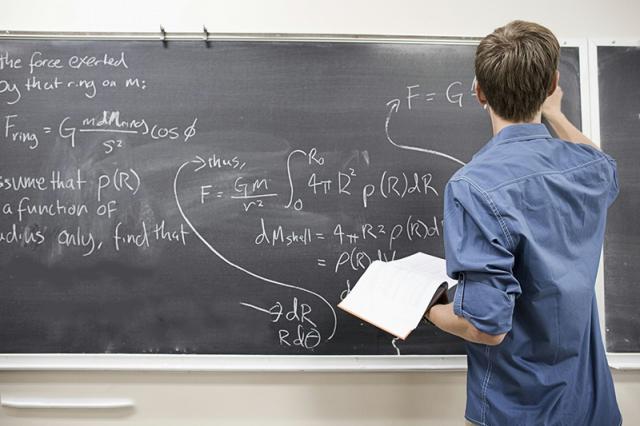 the force exerted
by that ring on m:
F_ring = G m dM_ring / s² cos φ
assume that ρ(R)
a function of
radius only, find that
thus,
F = Gm / r² ∫₀^R₀ 4π R² ρ(R) dR
dM_shell = 4π R² ρ(R) d
= ρ(R) dV
→ dR
R dθ
F = G